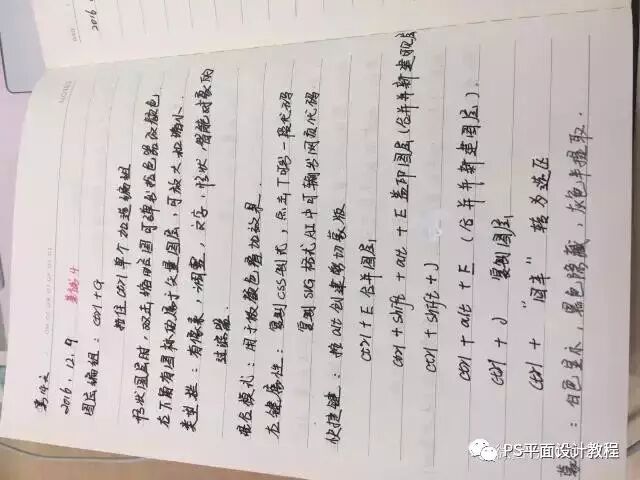 2016.
NOTES
第四文
2016.12.9
图层编组：ctrl+G
按住ctrl单个加选编组
形状图层时，双击缩略图可弹出拾色器改颜色
右下角有图标的属于矢量图层，可放大和缩小
类型栏：有像素，调整，文字，形状 智能对象的
过滤器
混合模式：用于做颜色叠加效果
右键属性：复制CSS样式，点击T的一段代码
复制SVG格式AI中可输出网页代码
快捷键：按alt创建剪切蒙版
ctrl+E合并图层
ctrl+shift+alt+E盖印图层(合并并新建图层
ctrl+shift+J
ctrl+alt+E (合并并新建图层)
ctrl+J 复制图层
ctrl+"回车" 转为选区
白色显示，黑色隐藏，灰色半
PS平面设计教程